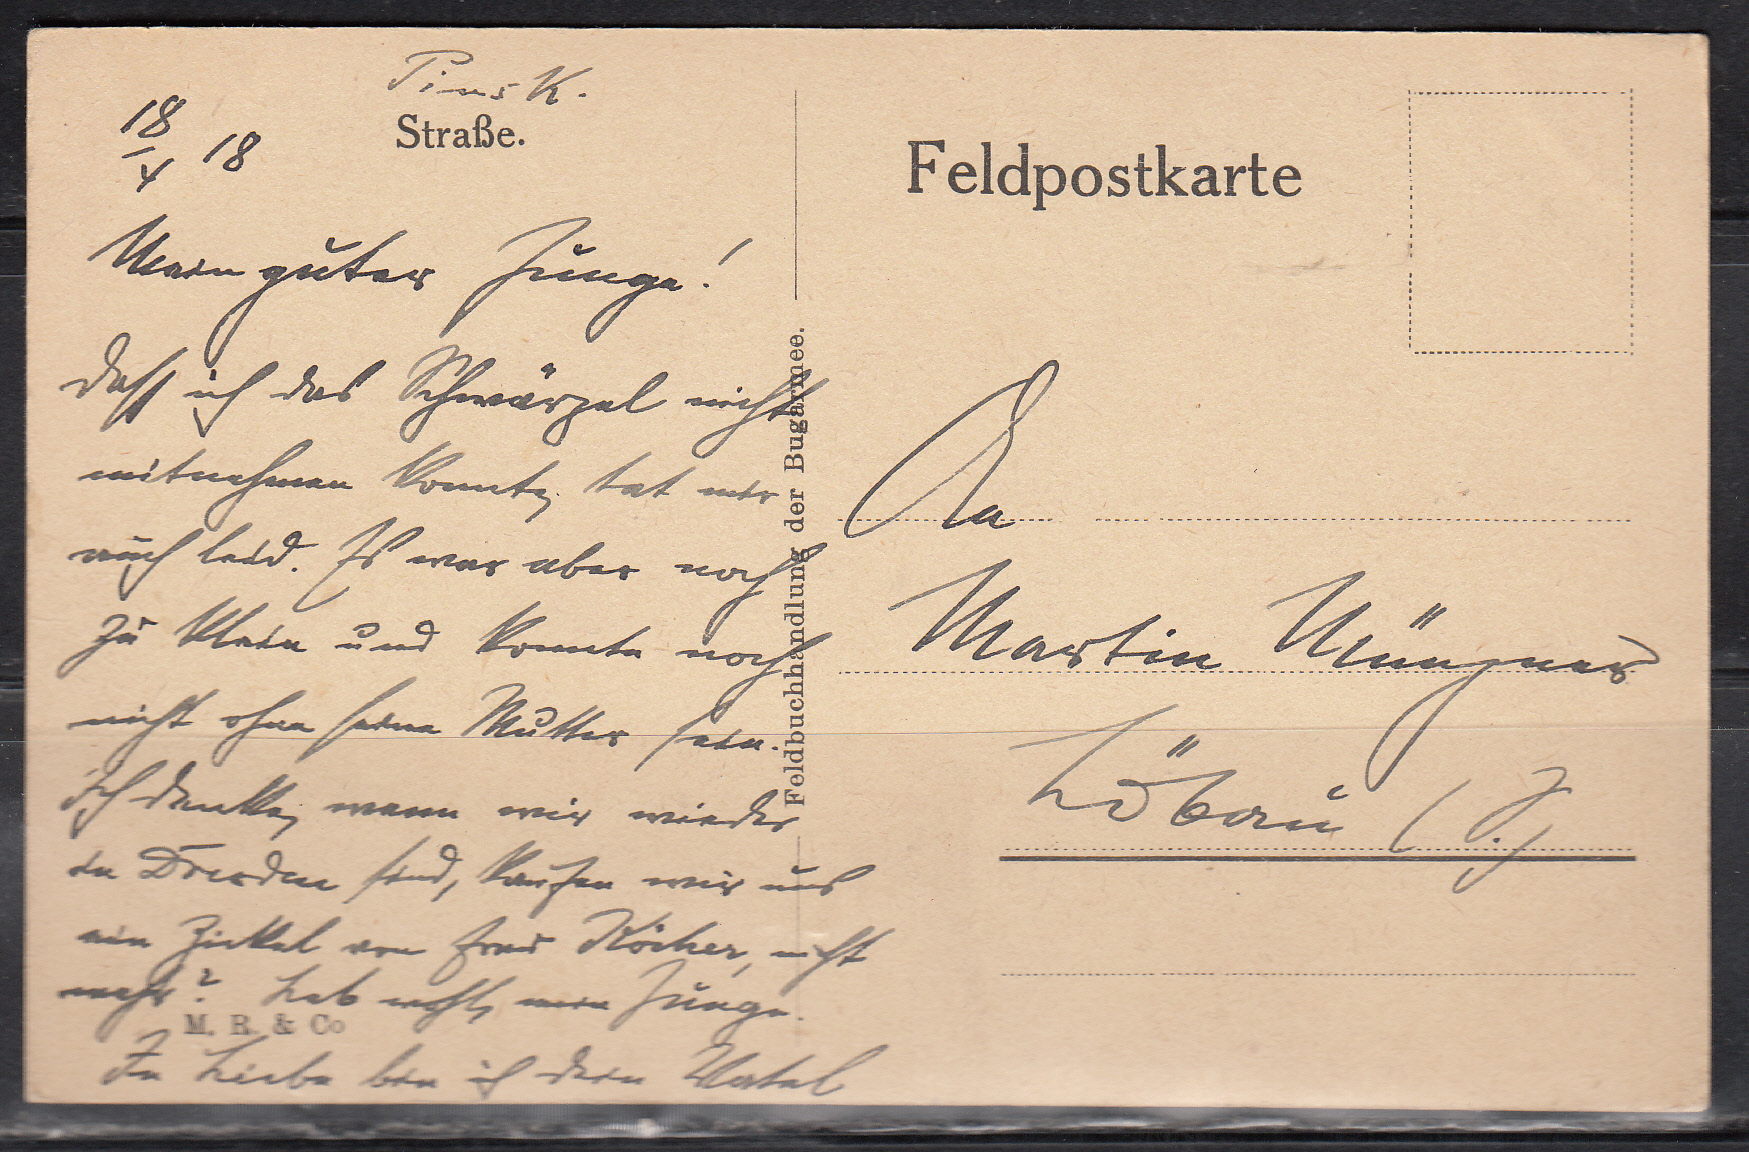 Pinsk.
Straße.
18/4 18
Mein guter Junge!
Dass ich das Schwärzel nicht
mitnehmen konnte, tat mir
auch leid. Es war aber noch
zu klein und konnte noch
nicht ohne seine Mutter sein.
Ich denke, wenn wir wieder
in Dresden sind, kaufen wir uns
ein Zickel von Frau Köcher, nicht
wahr? Leb wohl, mein Junge.
In Liebe bin ich dein Vatel
M. R. & Co
Feldbuchhandlung der Bugarmee.
Feldpostkarte
An
Martin Münzner
Löbau (S.)